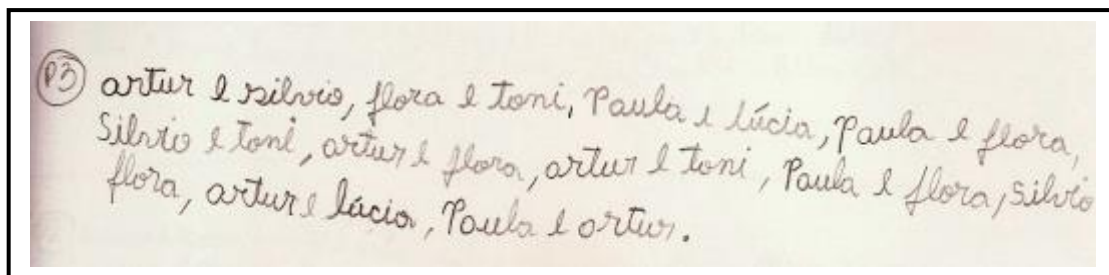 P3 artur e silvio, flora e toni, Paula e lúcia, Paula e flora,
Silvio e toni, artur e flora, artur e toni, Paula e flora, silvio
flora, artur e lúcia, Paula e artur.